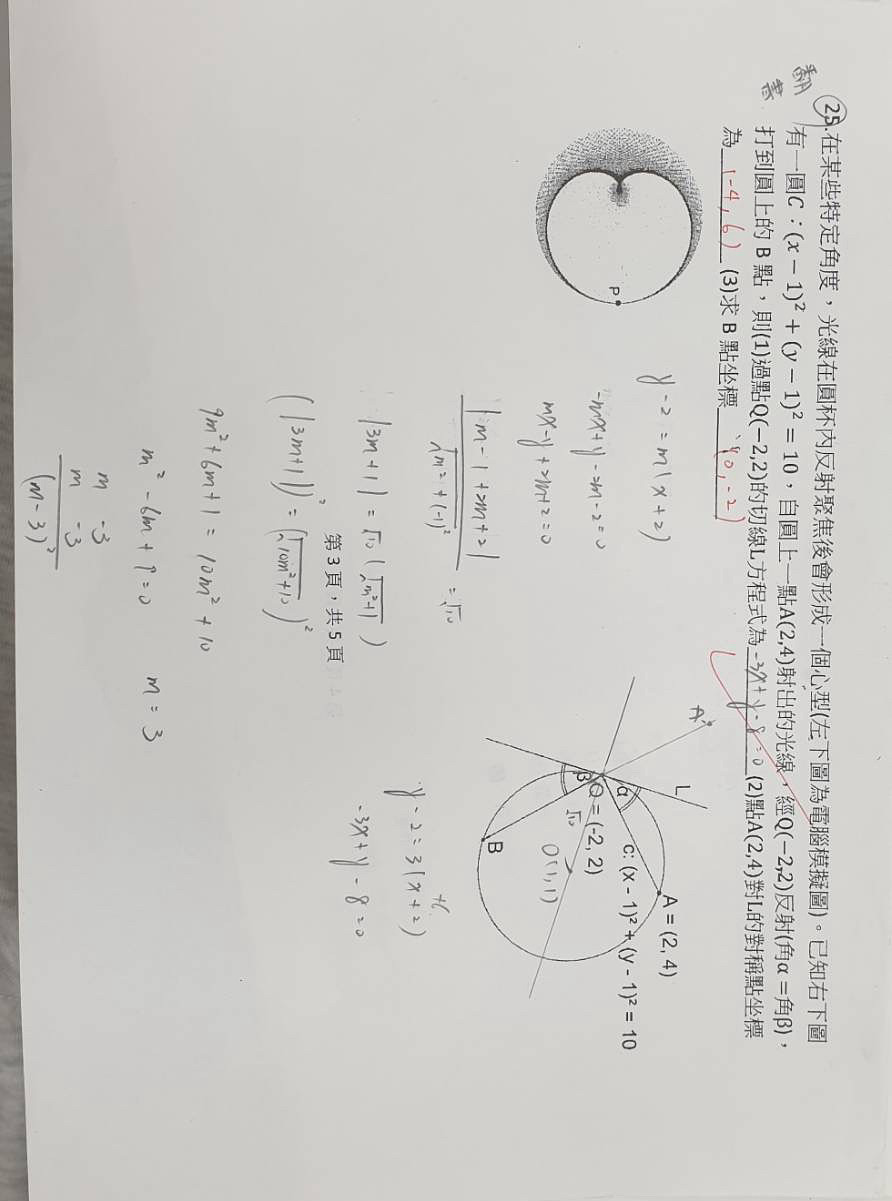 翻
書
25.在某些特定角度，光線在圓杯內反射聚焦後會形成一個心型(左下圖為電腦模擬圖)。已知右下圖
有一圓C：(x − 1)² + (y − 1)² = 10，自圓上一點A(2,4)射出的光線，經Q(−2,2)反射(角α＝角β)，
打到圓上的 B 點，則(1)過點Q(−2,2)的切線L方程式為 -3x+y-8=0 (2)點A(2,4)對L的對稱點坐標
為 (-4,6) (3)求 B 點坐標 (0,-2)
P
y-2=m(x+2)
-mx+y-2m-2=0
mx-y+2m+2=0
|m-1+2m+2|
√m²+(-1)² =√10
|3m+1|=√10(√m²+1)
(|3m+1|)²=(√10m²+10)²
9m²+6m+1=10m²+10
m²-6m+9=0 m=3
m -3
m -3
(m-3)²
A'
L
α
β
Q = (-2, 2)
A = (2, 4)
c: (x - 1)² + (y - 1)² = 10
√10
O(1,1)
B
+6
y-2=3(x+2)
-3x+y-8=0
第 3 頁，共 5 頁